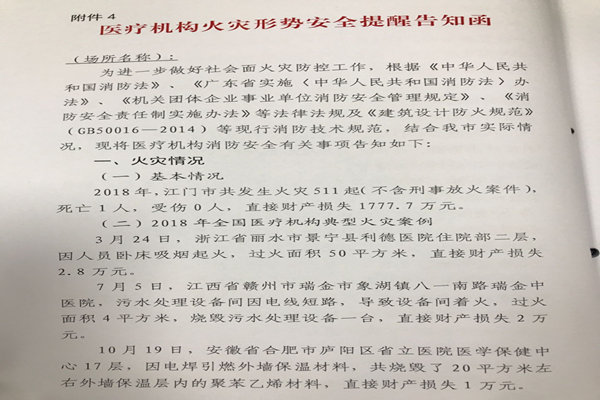 附件 4
医疗机构火灾形势安全提醒告知函
（场所名称）：
为进一步做好社会面火灾防控工作，根据《中华人民共
和国消防法》、《广东省实施〈中华人民共和国消防法〉办
法》、《机关团体企业事业单位消防安全管理规定》、《消
防安全责任制实施办法》等法律法规及《建筑设计防火规范》
（GB50016—2014）等现行消防技术规范，结合我市实际情
况，现将医疗机构消防安全有关事项告知如下：
一、火灾情况
（一）基本情况
2018 年，江门市共发生火灾 511 起（不含刑事放火案件），
死亡 1 人，受伤 0 人，直接财产损失 1777.7 万元。
（二）2018 年全国医疗机构典型火灾案例
3 月 24 日，浙江省丽水市景宁县利德医院住院部二层，
因人员卧床吸烟起火，过火面积 50 平方米，直接财产损失
2.8 万元。
7 月 5 日，江西省赣州市瑞金市象湖镇八一南路瑞金中
医院，污水处理设备间因电线短路，导致设备间着火，过火
面积 4 平方米，烧毁污水处理设备一台，直接财产损失 2 万
元。
10 月 19 日，安徽省合肥市庐阳区省立医院医学保健中
心 17 层，因电焊引燃外墙保温材料，共烧毁了 20 平方米左
右外墙保温层内的聚苯乙烯材料，直接财产损失 1 万元。